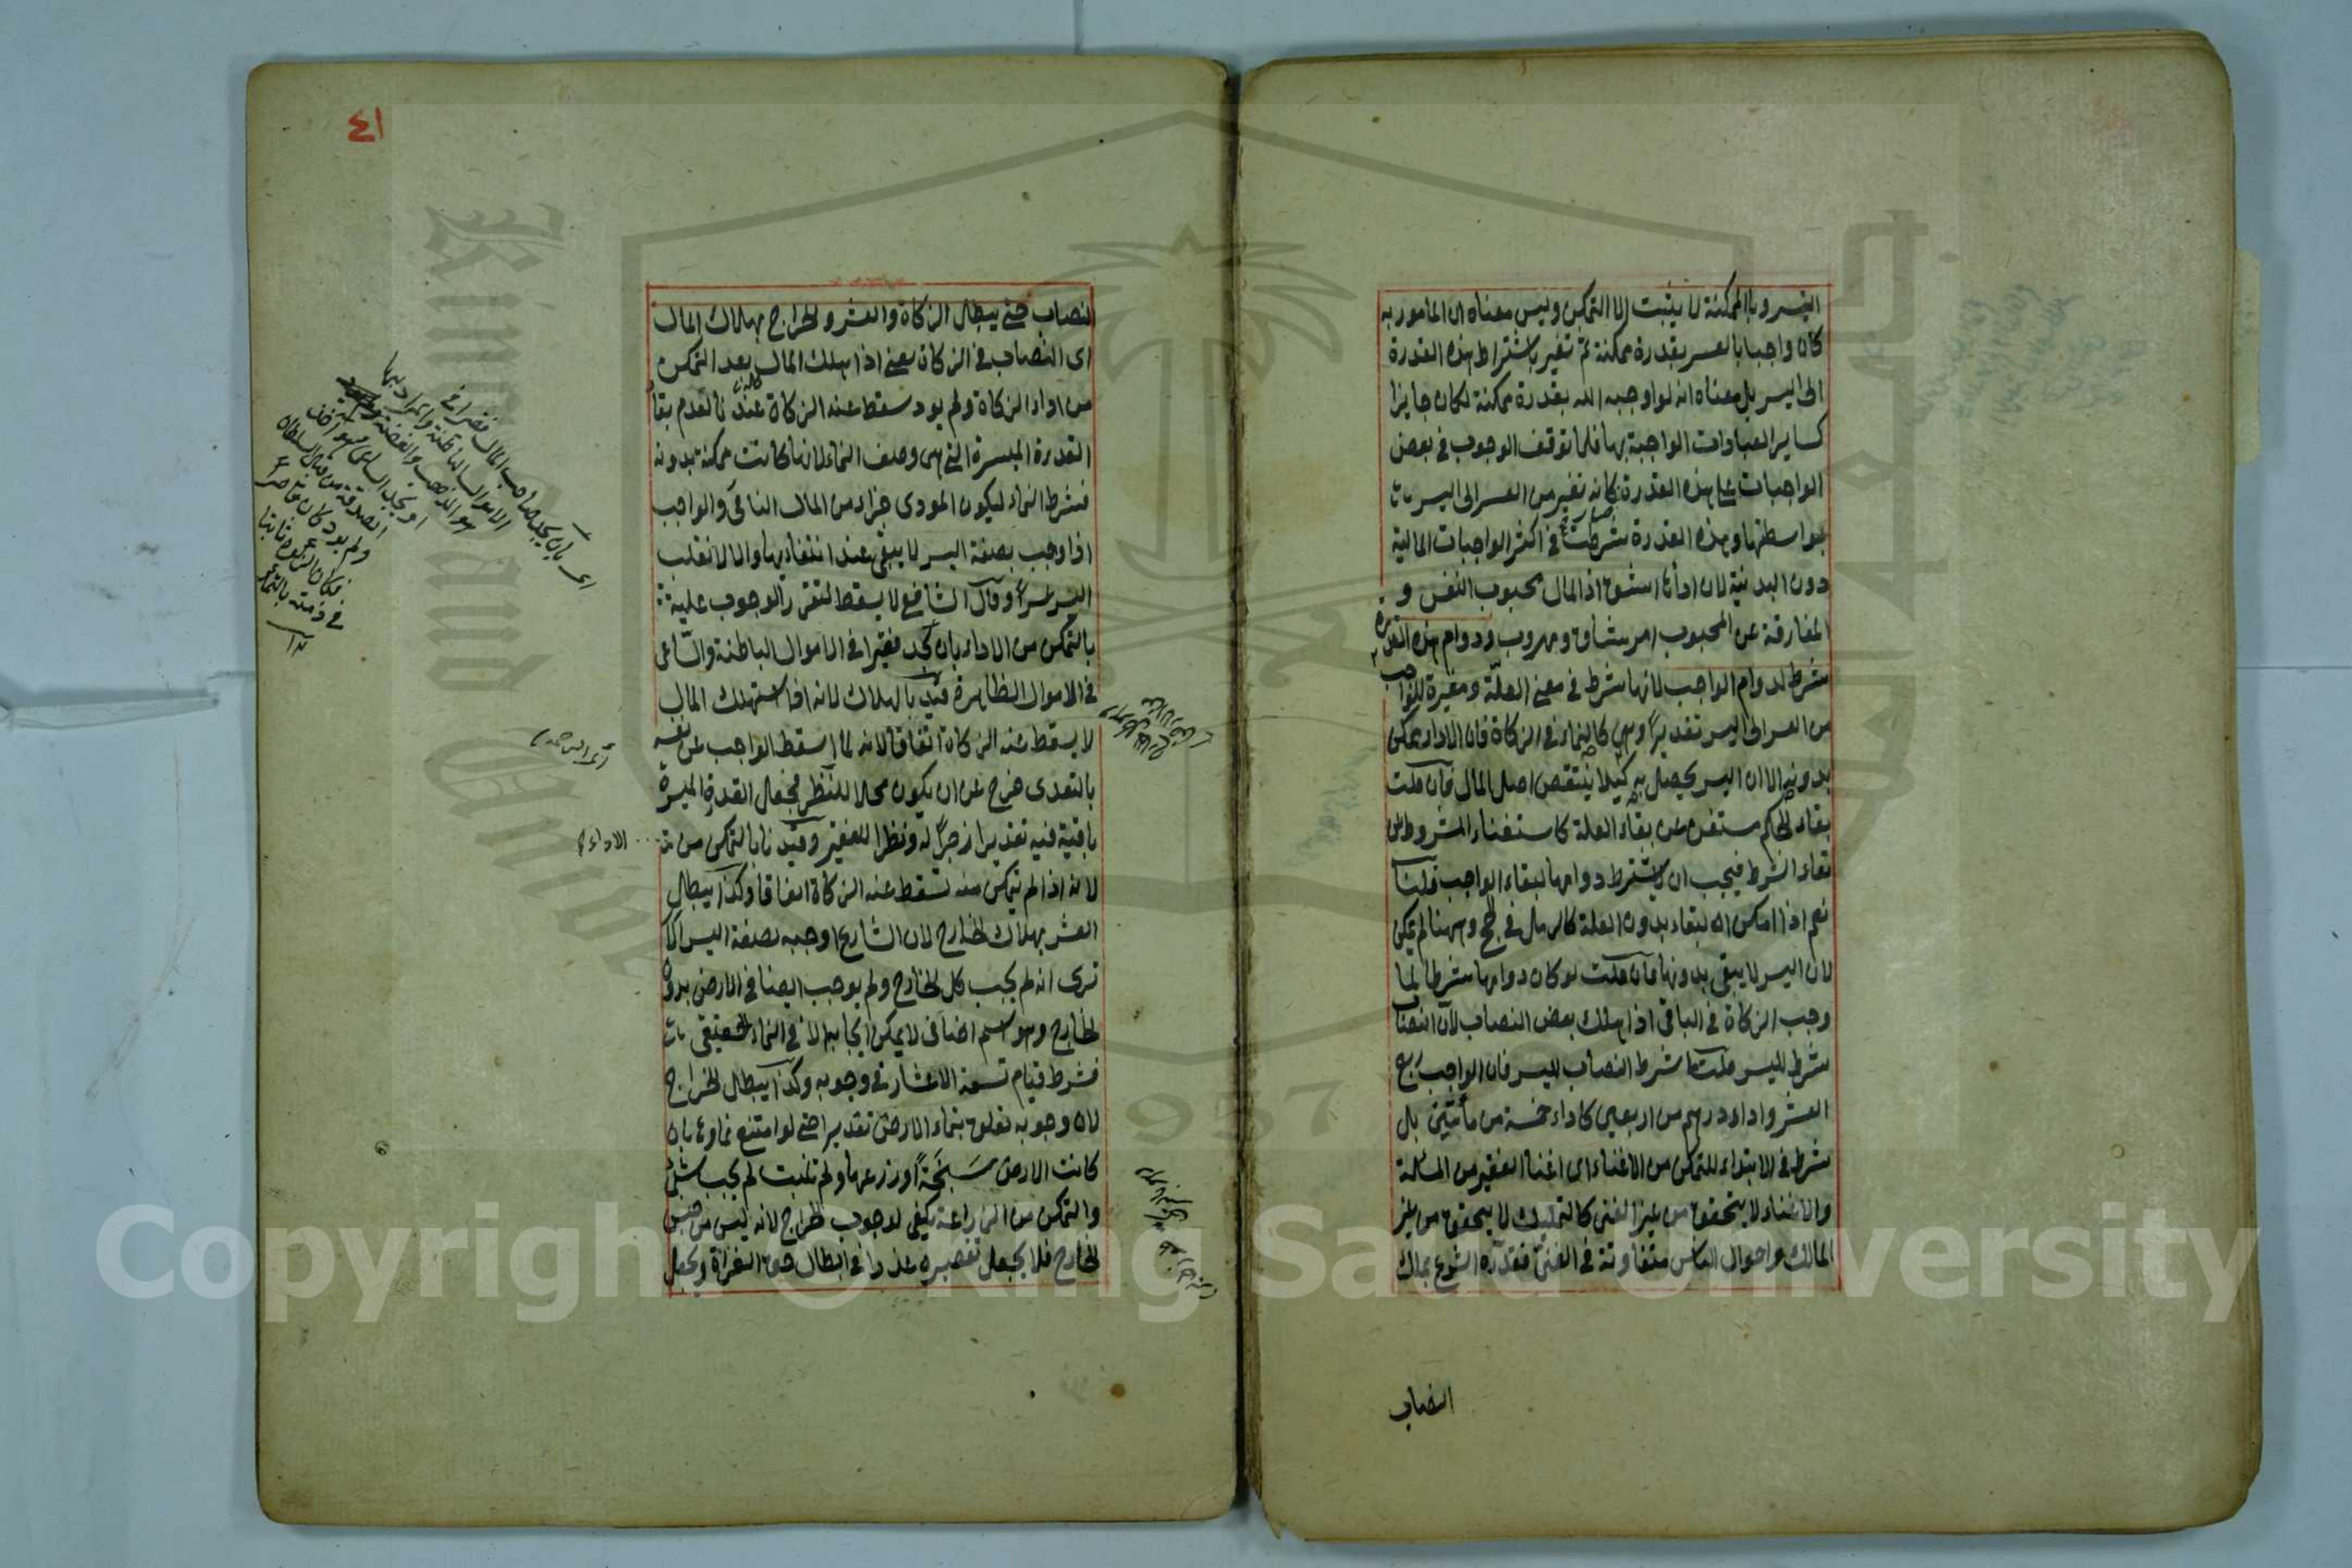 اليسر وبالممكنة لا يثبت الا التمكن وليس معناه ان المامور به
كان واجبا بالعسر بقدرة ممكنة ثم تغير باشتراط هذه القدرة
الى اليسر بل معناه انه لو اوجبه الله بقدرة ممكنة لكان جايزا
كساير العبادات الواجبة بها فلما توقف الوجوب في بعض
الواجبات على هذه القدرة كانه تغير من العسر الى اليسر
بواسطتها وهذه القدرة شرطت في اكثر الواجبات المالية
دون البدنية لان اداها اشق اذ المال محبوب النفس و
المفارقة عن المحبوب امر شاق ودوام هذه القدرة
شرط لدوام الواجب لانها شرط في معنى العلة ومغيرة للواجب
من العسر الى اليسر تقديرا وهي كالنماء في الزكاة فان الاداء يمكن
بدونه الا ان اليسر يحصل به كيلا ينتقص اصل المال فان قلت
بقاء الحكم مستغن عن بقاء العلة كاستغناء المشروط عن
بقاء الشرط فيجب ان لا يشترط دوامها لبقاء الواجب قلنا
نعم اذا امكن البقاء بدون العلة كالرمل في الحج وههنا لم يمكن
لان اليسر لا يبقى بدونها فان قلت لو كان دوامها شرطا لما
وجب الزكاة في الباقي اذا هلك بعض النصاب لان النصاب
شرط لليسر قلت ما شرط النصاب لليسر فان الواجب ربع
العشر واداء درهم من اربعين كاداء خمسة من مأتين بل
شرط في الابتداء للتمكن من الاغناء اى اغناء الفقير من المسألة
والاغناء لا يتحقق من غير الغنى كالتمليك لا يتحقق من غير
المالك واحوال الناس متفاوتة في الغنى فقدره الشرع بملك
النصاب
٤١
النصاب حتى يبطل الزكاة والعشر والخراج بهلاك المال
اى النصاب في الزكاة يعنى اذا هلك المال بعد التمكن
من اداء الزكاة ولم يود سقط عنه الزكاة عندنا لعدم بقاء
القدرة الميسرة التي هي وصف النماء لانها كانت ممكنة بدونه
فشرط النماء ليكون المودى جزاء من المال النامي والواجب
اذا وجب بصفة اليسر لا يبقى عند انتفاءها والا لانقلب
اليسر عسرا وقال الشافعي لا يسقط لتقرر الوجوب عليه
بالتمكن من الاداء بان يجد فقيرا في الاموال الباطنة والساعى
في الاموال الظاهرة قيد بالهلاك لانه اذا استهلك المال
لا يسقط عنه الزكاة اتفاقا لانه لما اسقط الواجب عن نفسه
بالتعدى خرج عن ان يكون محلا للنظر فجعل القدرة الميسرة
باقية فيه تقديرا زجرا له ونظرا للفقير وقيدنا بالتمكن من
الاداء
لانه اذا لم يتمكن منه تسقط عنه الزكاة اتفاقا وكذا يبطل
العشر بهلاك الخارج لان الشارع اوجبه بصفة اليسر الا
ترى انه لم يجب كل الخارج ولم يوجب ايضا في الارض بدون
الخارج وهو اسم اضافى لا يمكن ايجابه الا في النماء الحقيقى
فشرط قيام تسعة الاعشار في وجوبه وكذا يبطل الخراج
لان وجوبه تعلق بنماء الارض تقديرا حتى لو امتنع نماوها بان
كانت الارض سبخة او زرعها ولم تنبت لم يجب شئ
والتمكن من الزراعة يكفى لوجوب الخراج لانه ليس من جنس
الخارج فلا يجعل تقصيره عذرا في ابطال حق الغزاة ويجعل
اى بان يجد صاحب المال فقيرا في
الاموال الباطنة والمراد بها
هو الذهب والفضة
او يجد الساعى وهو آخذ
الصدقة من قبل السلطان
ولم يود كان قاصرا
فكان الوجوب ثابتا
في ذمته بالتمكن